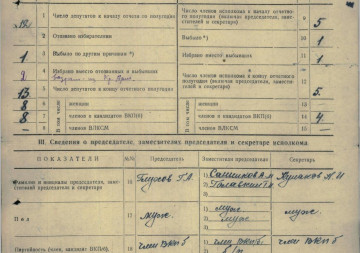 1 Число депутатов к началу отчетн. полугодия
Число членов исполкома к началу отчетного полугодия (включая председателя, заместителей и секретаря) 8 5
2 Отозвано избирателями
Выбыло *) 10 1
1 3 Выбыло по другим причинам *)
Избрано вместо выбывших 11 1
2 4 Избрано вместо отозванных и выбывших
13 5 Число депутатов к концу отчетн. полугодия
Число членов исполкома к концу отчетного полугодия (включая председателя, заместителей и секретаря) 12 5
8 6 В том числе женщин
В том числе женщин 13
8 7 членов и кандидатов ВКП(б)
членов и кандидатов ВКП(б) 14 4
8 членов ВЛКСМ
членов ВЛКСМ 15
III. Сведения о председателе, заместителях председателя и секретаре исполкома
ПОКАЗАТЕЛИ №№ Председатель Заместители председателя Секретарь
Фамилии и инициалы председателя, заместителей председателя и секретаря 16 Глухов Г.А. 1) 2)
Пол 17 муж. 1) муж. 2) муж. муж.
Партийность (член, кандидат ВКП(б), 18 член ВКПб 1) член ВКПб. 2) б/п член ВКПб